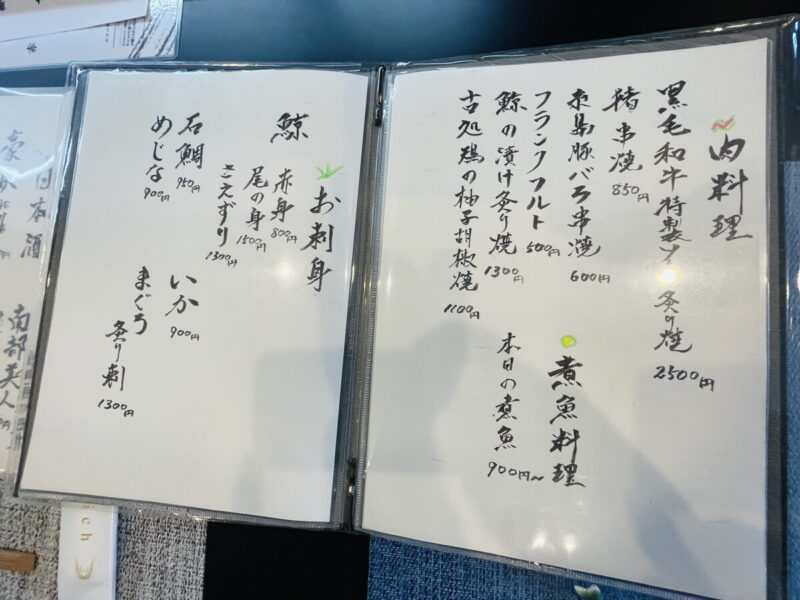 肉料理
黒毛和牛特製
炙り焼
2500円
猪串焼
850円
糸島豚バラ串焼
600円
フランクフルト
500円
鯨の漬け炙り焼
1300円
古処鶏の柚子胡椒焼
1100円
煮魚料理
本日の煮魚
900円〜
お刺身
鯨
赤身
800円
尾の身
1500円
さえずり
1300円
石鯛
950円
めじな
900円
いか
900円
まぐろ
炙り刺
1300円
日本酒
南部美人